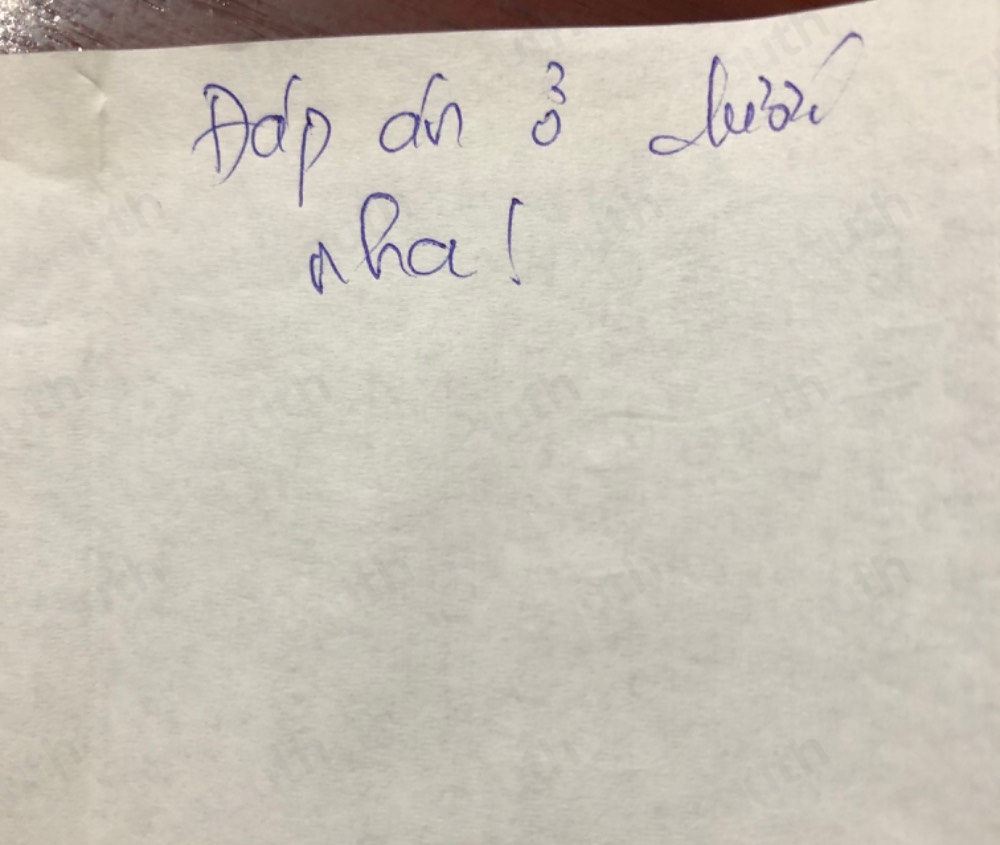 Đáp án ở dưới
nha!